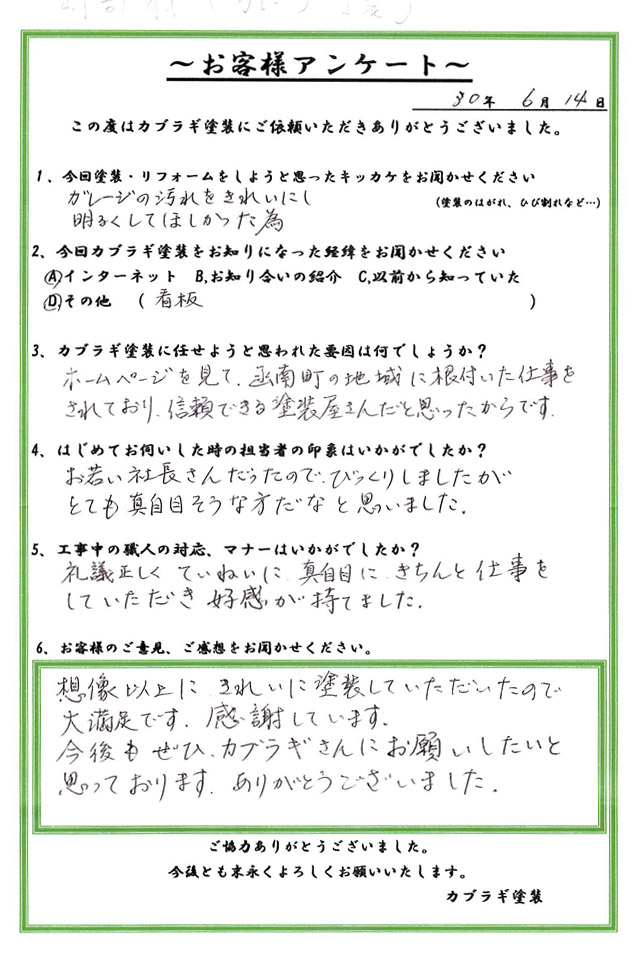 ～お客様アンケート～
30年 6月 14日
この度はカブラギ塗装にご依頼いただきありがとうございました。
1、今回塗装・リフォームをしようと思ったキッカケをお聞かせください
(塗装のはがれ、ひび割れなど…)
ガレージの汚れをきれいにし
明るくしてほしかった為
2、今回カブラギ塗装をお知りになった経緯をお聞かせください
A,インターネット B,お知り合いの紹介 C,以前から知っていた
D,その他 ( 看板 )
3、カブラギ塗装に任せようと思われた要因は何でしょうか?
ホームページを見て、函南町の地域に根付いた仕事を
されており、信頼できる塗装屋さんだと思ったからです.
4、はじめてお伺いした時の担当者の印象はいかがでしたか?
お若い社長さんだったので、びっくりしましたが
とても真自目そうな方だなと思いました.
5、工事中の職人の対応、マナーはいかがでしたか?
礼議正しく ていねいに 真自目に きちんと仕事を
していただき 好感が持てました.
6、お客様のご意見、ご感想をお聞かせください。
想像以上に きれいに塗装していただいたので
大満足です. 感謝しています.
今後も ぜひ、カブラギさんにお願いしたいと
思っております. ありがとうございました.
ご協力ありがとうございました。
今後とも末永くよろしくお願いいたします。
カブラギ塗装